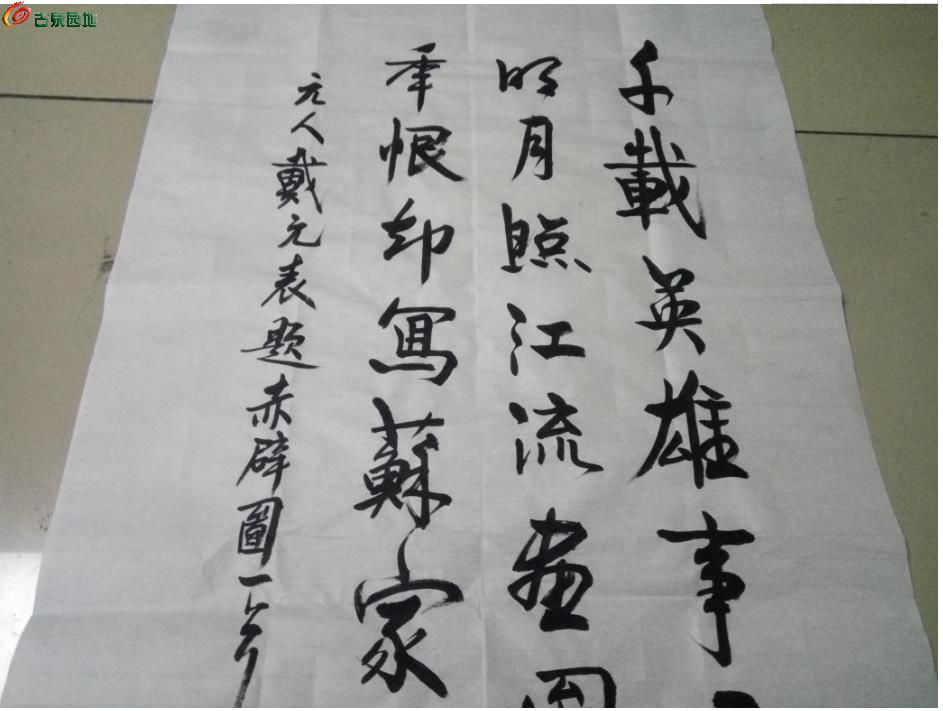 古泉园地
千載英雄事
明月照江流畫
年恨却寫蘇家
元人戴元表题赤壁圖一首